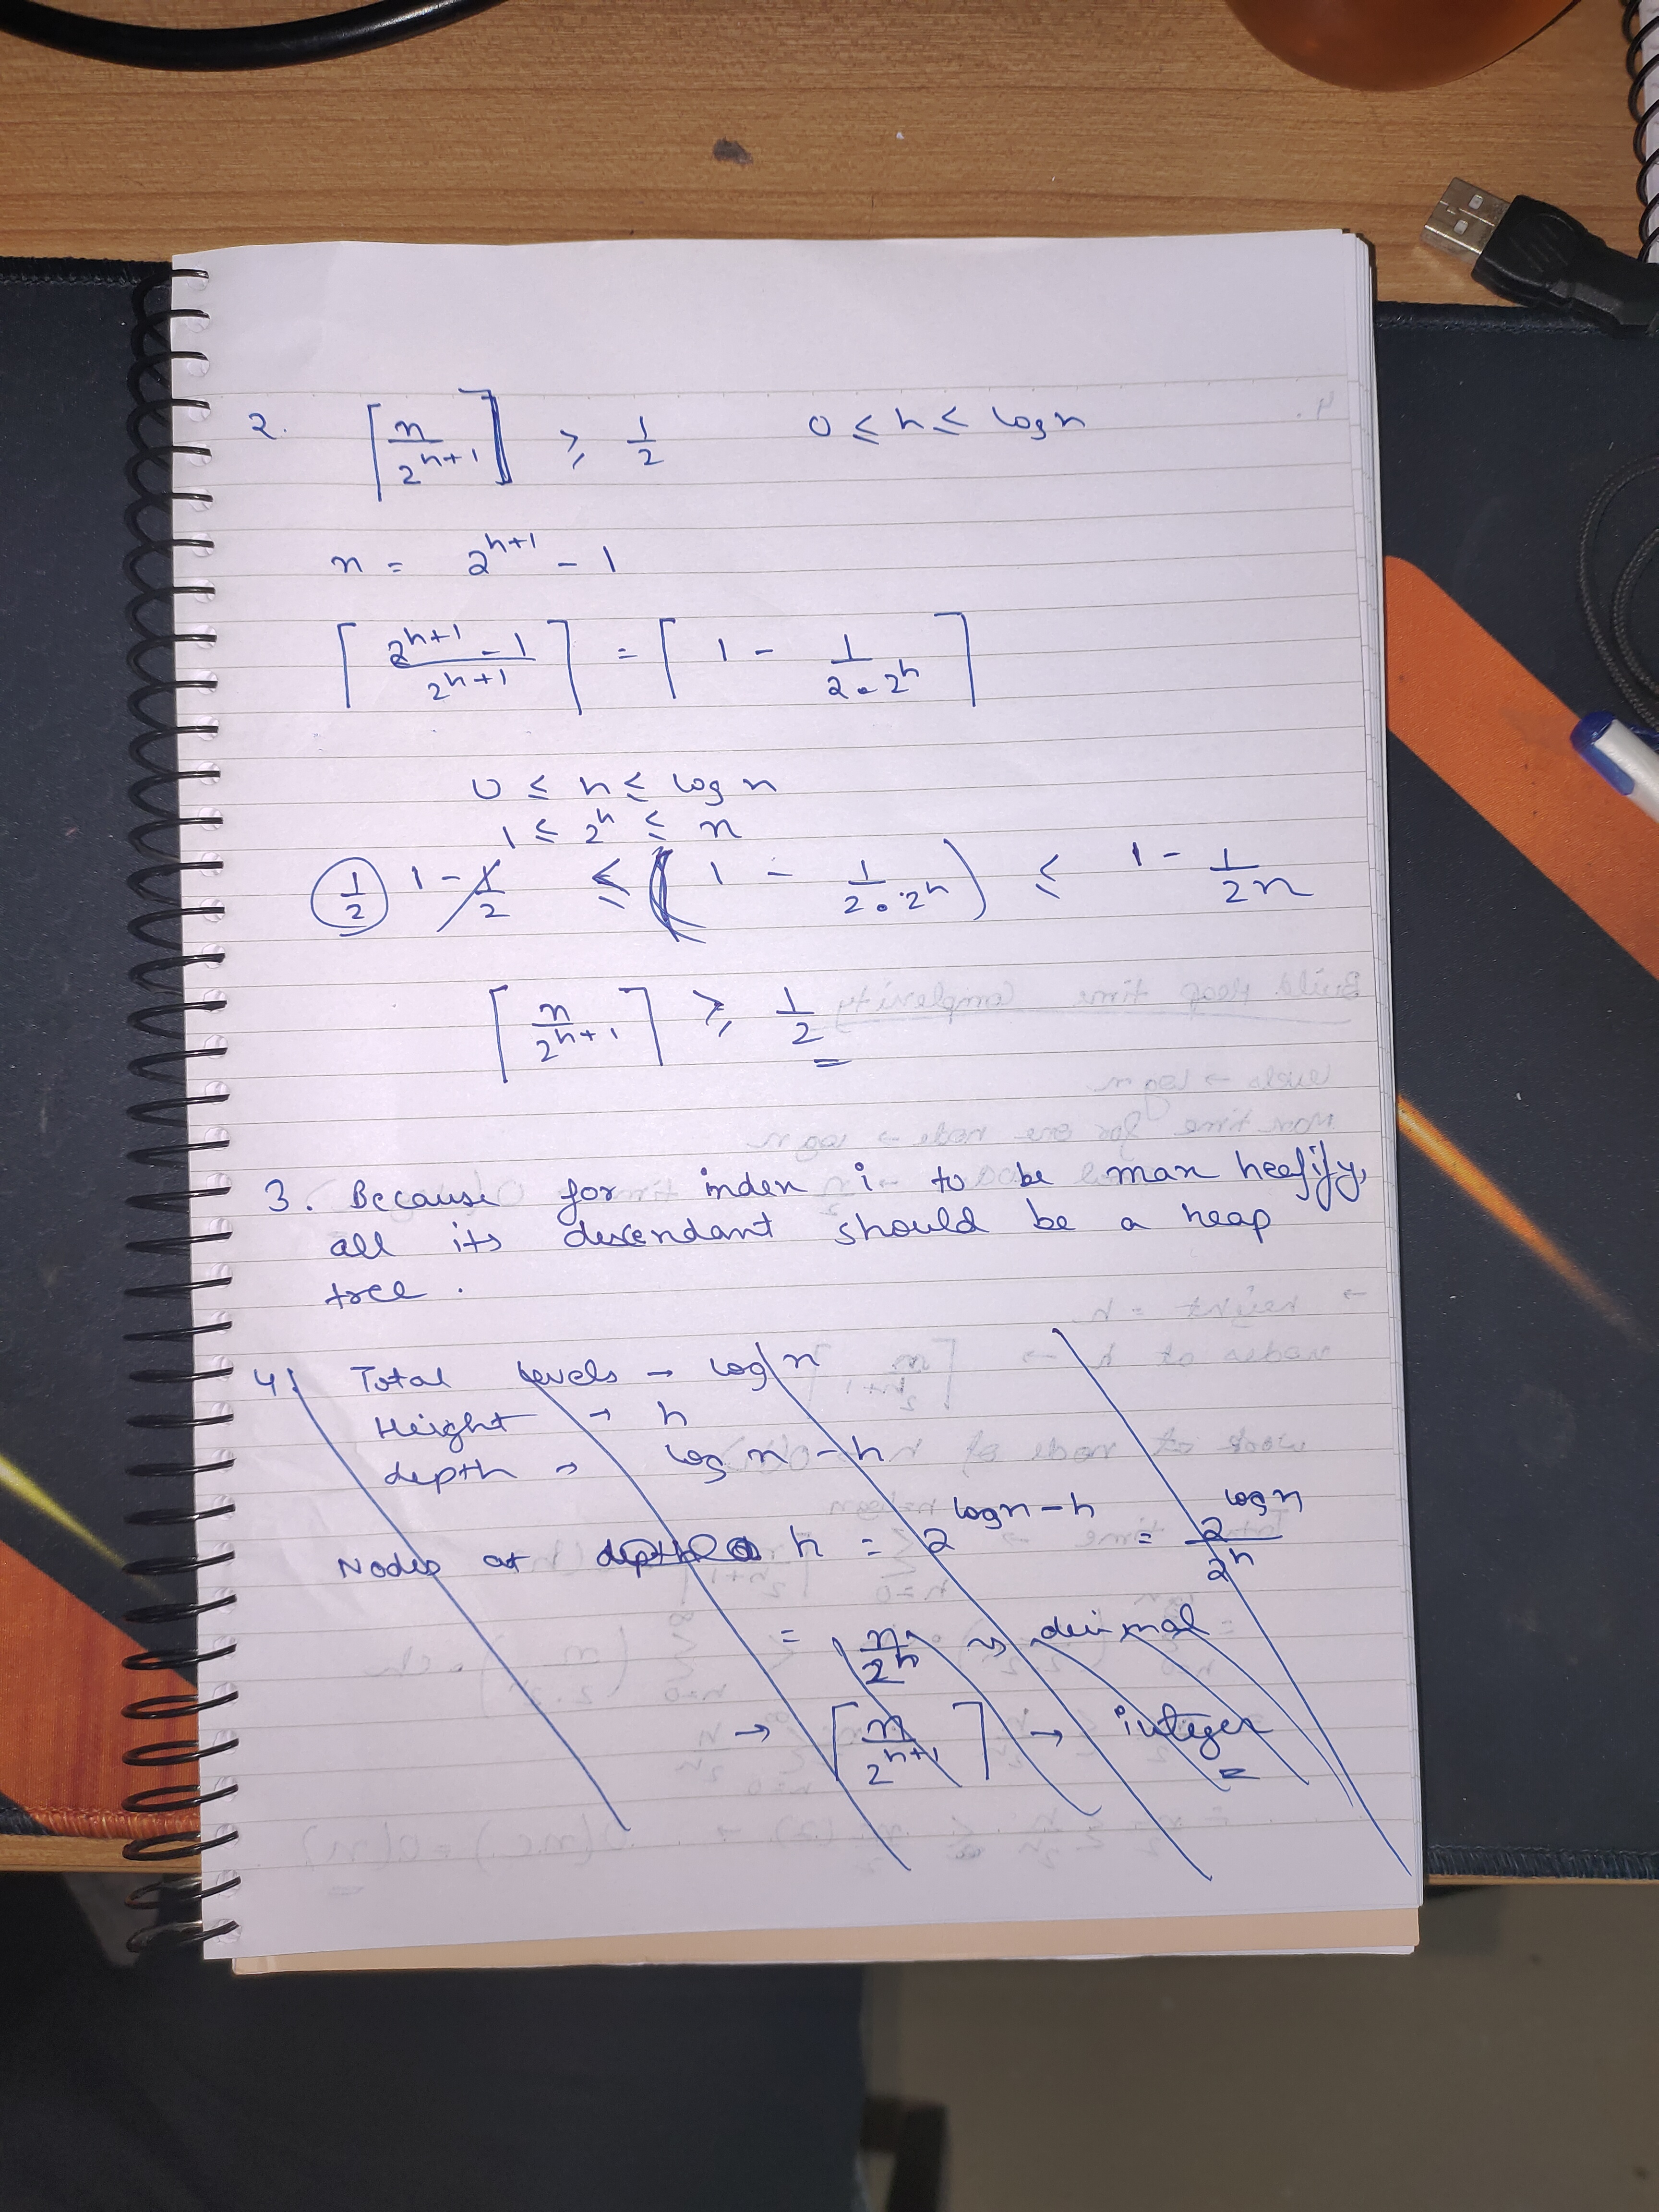 2. ⌈n/2^(h+1)⌉ ≥ 1/2 0 ≤ h ≤ log n
n = 2^(h+1) - 1
⌈(2^(h+1) - 1)/2^(h+1)⌉ = ⌈1 - 1/(2·2^h)⌉
0 ≤ h ≤ log n
1 ≤ 2^h ≤ n
1/2 1 - 1/2 ≤ (1 - 1/(2·2^h)) ≤ 1 - 1/(2n)
⌈n/2^(h+1)⌉ ≥ 1/2
3. Because for index i to be max heapify,
all its descendant should be a heap
tree.
4. Total levels → log n
Height → h
depth → log n - h
Nodes at h = 2^(log n - h) = 2^(log n)/2^h
= n/2^h → decimal
→ ⌈n/2^(h+1)⌉ → integer